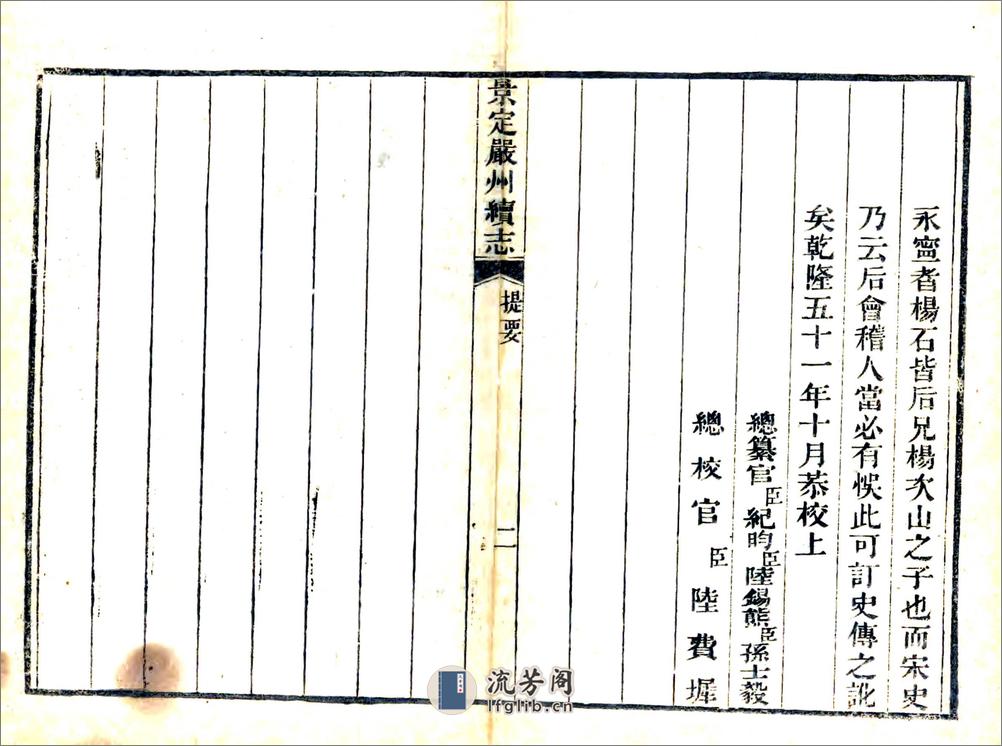 永寧者楊石皆后兄楊次山之子也而宋史
乃云后會稽人當必有悞此可訂史傳之訛
矣乾隆五十一年十月恭校上
總纂官臣紀昀臣陸錫熊臣孫士毅
總校官臣陸費墀
景定嚴州續志
提要
二
流芳阁
lfglib.cn